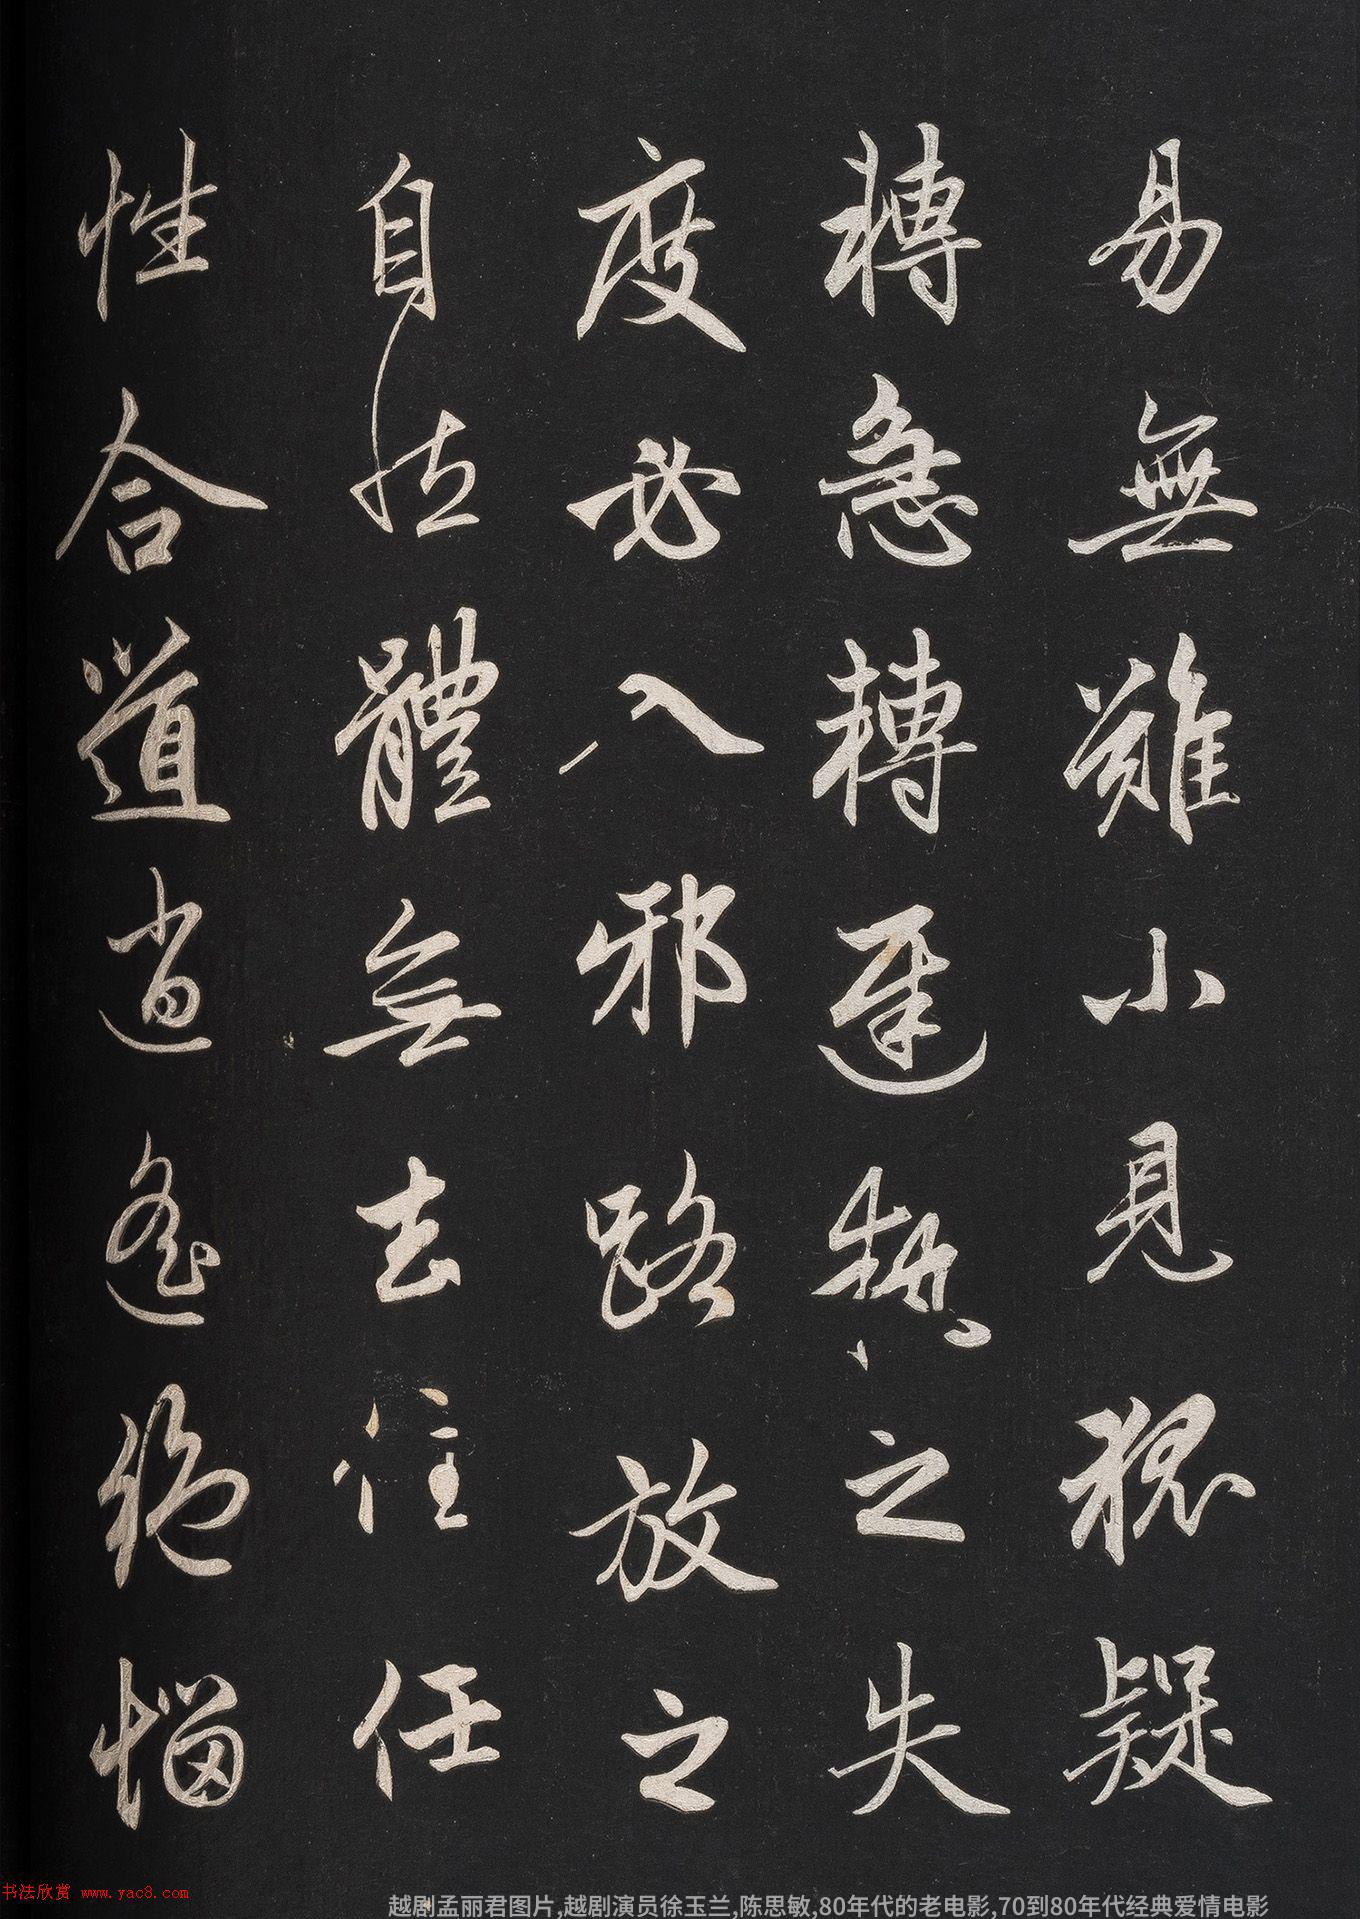 易無難小見狐疑
轉急轉遲執之失
度必入邪路放之
自然體無去住任
性合道逍遙絕惱
书法欣赏 www.yac8.com
越剧孟丽君图片,越剧演员徐玉兰,陈思敏,80年代的老电影,70到80年代经典爱情电影